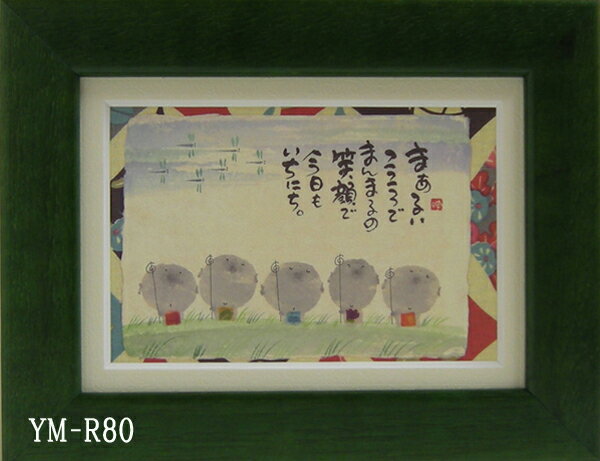 まあるい
こころで
まんまるの
笑顔で
今日も
いちにち。
YM-R80